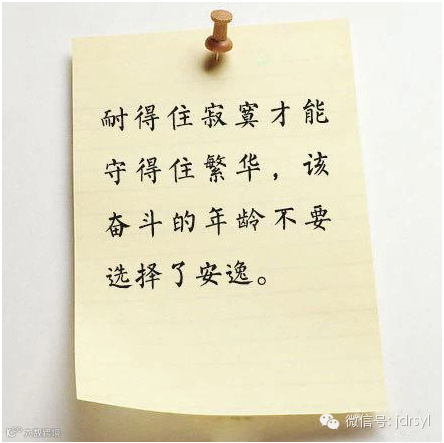 耐得住寂寞才能
守得住繁华，该
奋斗的年龄不要
选择了安逸。
微信号: jdrsyl